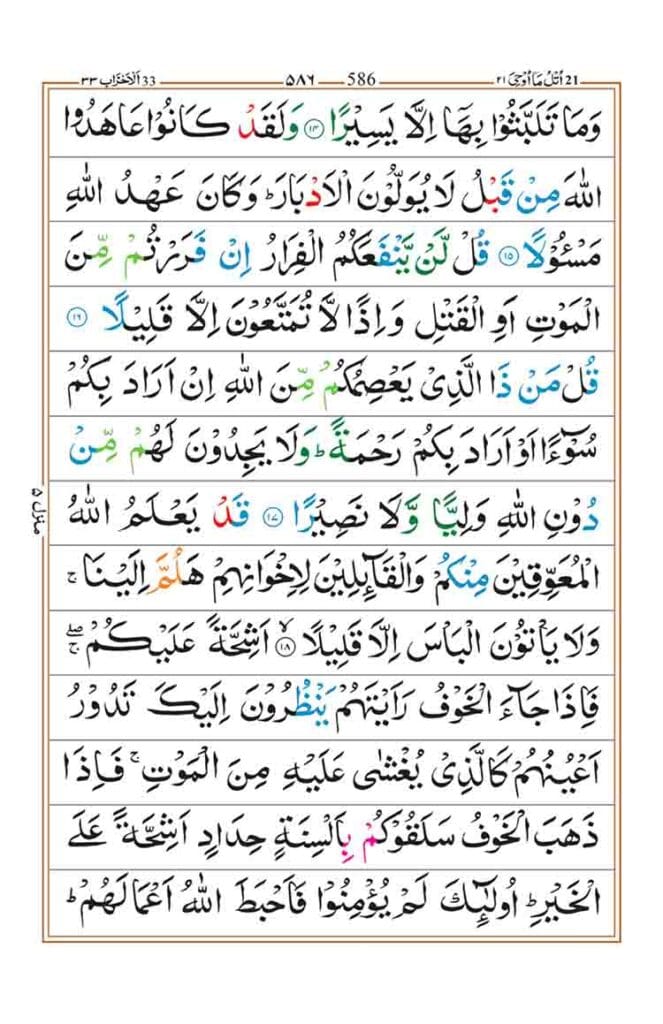 اُتْلُ مَاۤ اُوْحِیَ ٢١ 21
586 ٥٨٦
33 اَلْاَحْزَاب ٣٣
وَمَا تَلَبَّثُوْا بِهَاۤ اِلَّا یَسِیْرًا ۝١٤ وَلَقَدْ كَانُوْا عَاهَدُوا
اللّٰهَ مِنْ قَبْلُ لَا یُوَلُّوْنَ الْاَدْبَارَ ؕ وَكَانَ عَهْدُ اللّٰهِ
مَسْـُٔوْلًا ۝١٥ قُلْ لَّنْ یَّنْفَعَكُمُ الْفِرَارُ اِنْ فَرَرْتُمْ مِّنَ
الْمَوْتِ اَوِ الْقَتْلِ وَاِذًا لَّا تُمَتَّعُوْنَ اِلَّا قَلِیْلًا ۝١٦
قُلْ مَنْ ذَا الَّذِیْ یَعْصِمُكُمْ مِّنَ اللّٰهِ اِنْ اَرَادَ بِكُمْ
سُوْٓءًا اَوْ اَرَادَ بِكُمْ رَحْمَةً ؕ وَلَا یَجِدُوْنَ لَهُمْ مِّنْ
دُوْنِ اللّٰهِ وَلِیًّا وَّلَا نَصِیْرًا ۝١٧ قَدْ یَعْلَمُ اللّٰهُ
الْمُعَوِّقِیْنَ مِنْكُمْ وَالْقَآىِٕلِیْنَ لِاِخْوَانِهِمْ هَلُمَّ اِلَیْنَا ۚ
وَلَا یَاْتُوْنَ الْبَاْسَ اِلَّا قَلِیْلًا ۝١٨ۙ اَشِحَّةً عَلَیْكُمْ ۖۚ
فَاِذَا جَآءَ الْخَوْفُ رَاَیْتَهُمْ یَنْظُرُوْنَ اِلَیْكَ تَدُوْرُ
اَعْیُنُهُمْ كَالَّذِیْ یُغْشٰی عَلَیْهِ مِنَ الْمَوْتِ ۚ فَاِذَا
ذَهَبَ الْخَوْفُ سَلَقُوْكُمْ بِاَلْسِنَةٍ حِدَادٍ اَشِحَّةً عَلَی
الْخَیْرِ ؕ اُولٰٓىِٕكَ لَمْ یُؤْمِنُوْا فَاَحْبَطَ اللّٰهُ اَعْمَالَهُمْ ؕ
منزل ٥